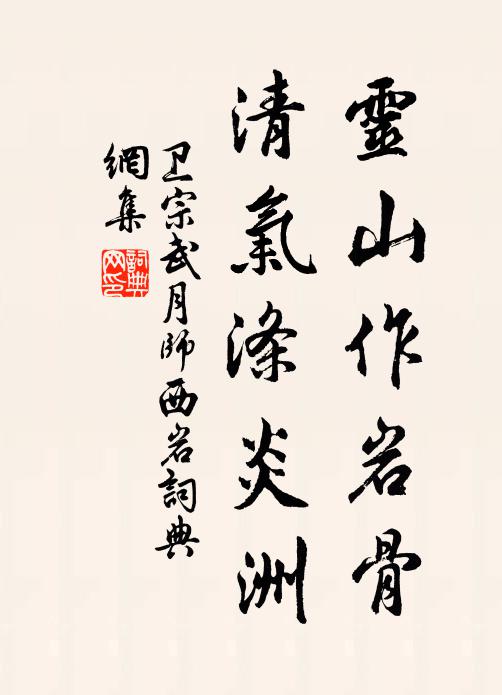 靈山作岩骨
清氣滌炎洲
卫宗武月師西岩詞典
網集
詞典网印